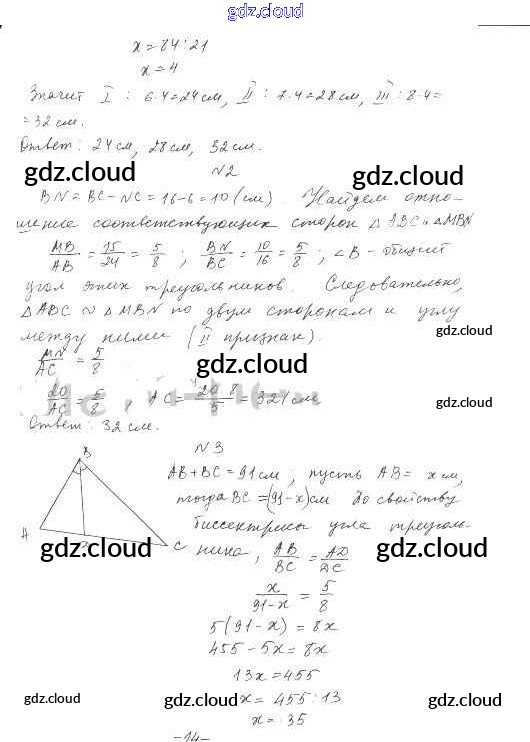 gdz.cloud
x = 84 : 21
x = 4
Значит I : 6·4=24см, II : 7·4=28см, III : 8·4=
=32 см.
Ответ: 24см, 28см, 32см.
gdz.cloud gdz.cloud
N2
BN = BC - NC = 16-6 = 10 (см). Найдем отно-
шение соответствующих сторон △ABC и △MBN
MB/AB = 15/24 = 5/8 ; BN/BC = 10/16 = 5/8 ; ∠B - общий
угол этих треугольников. Следовательно,
△ABC ~ △MBN по двум сторонам и углу
между ними (II признак).
gdz.cloud
MN/AC = 5/8
gdz.cloud
20/AC = 5/8 , AC = 20·8/5 = 32 см
gdz.cloud
Ответ: 32 см.
N3
B
AB + BC = 91 см ; пусть AB = x см,
gdz.cloud gdz.cloud
тогда BC = (91-x) см По свойству
биссектрисы угла треуголь-
A D C
ника, AB/BC = AD/DC
gdz.cloud gdz.cloud
x/(91-x) = 5/8
5(91-x) = 8x
455 - 5x = 8x
13x = 455
x = 455 : 13
gdz.cloud gdz.cloud gdz.cloud
x = 35
-14-